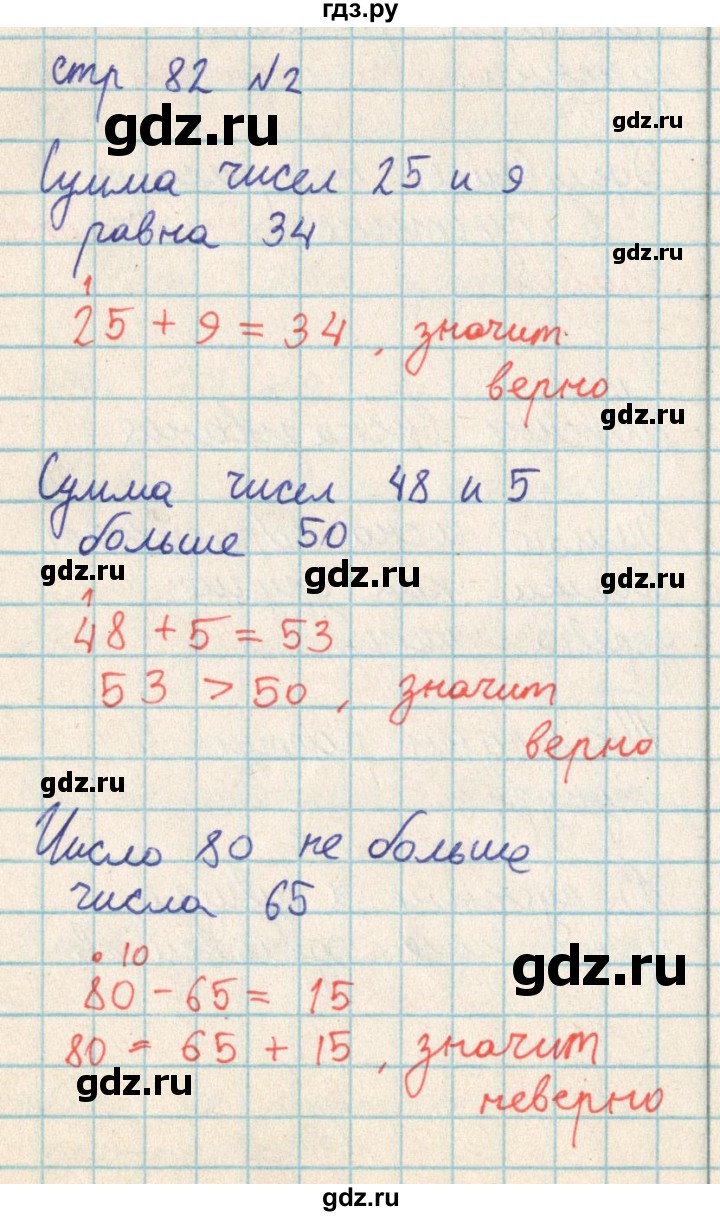 гдз.ру
стр 82 №2
gdz.ru
gdz.ru
Сумма чисел 25 и 9
равна 34
gdz.ru
1
25 + 9 = 34, значит
верно
gdz.ru
Сумма чисел 48 и 5
больше 50
gdz.ru
gdz.ru
gdz.ru
1
48 + 5 = 53
53 > 50, значит
верно
gdz.ru
Число 80 не больше
числа 65
. 10
gdz.ru
80 - 65 = 15
80 = 65 + 15, значит
gdz.ru
неверно
gdz.ru